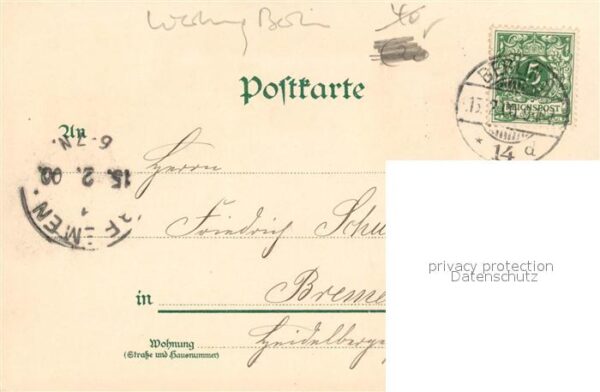 Werbung Berlin
Postkarte
5
REICHSPOST
BERLIN
14 d
An
6-7N.
15. 2. 00.
BREMEN.
1
Herrn
Friedrich Schu
in Breme
Wohnung
(Straße und Hausnummer)
Heidelberger
privacy protection
Datenschutz